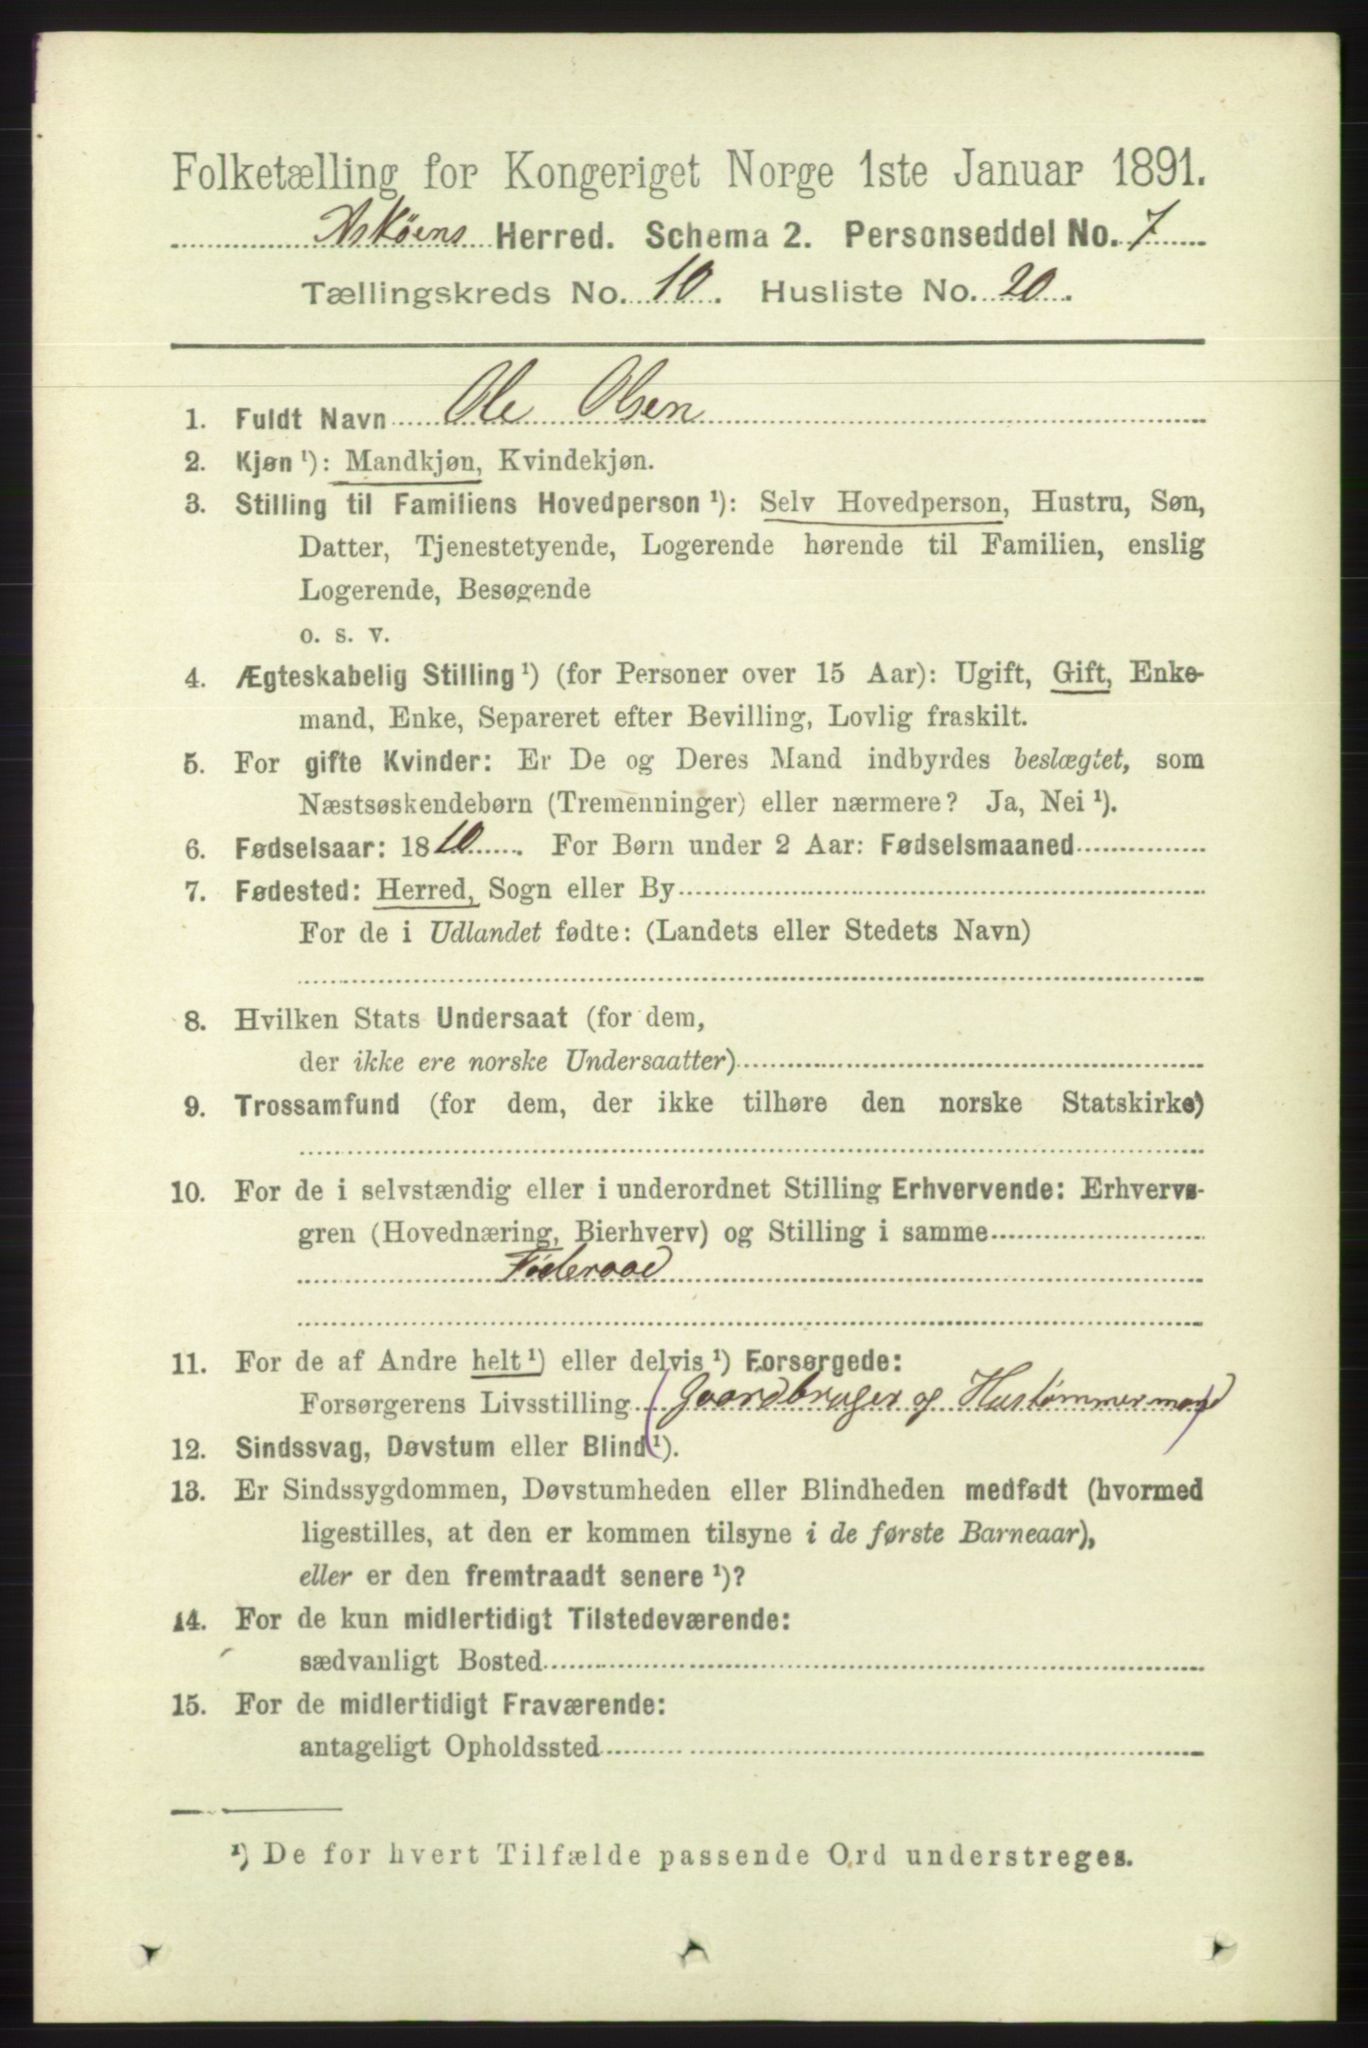 Folketælling for Kongeriget Norge 1ste Januar 1891.
Askøens Herred. Schema 2. Personseddel No. 7
Tællingskreds No. 10. Husliste No. 20.
1. Fuldt Navn Ole Olsen
2. Kjøn ¹): Mandkjøn, Kvindekjøn.
3. Stilling til Familiens Hovedperson ¹): Selv Hovedperson, Hustru, Søn,
Datter, Tjenestetyende, Logerende hørende til Familien, enslig
Logerende, Besøgende
o. s. v.
4. Ægteskabelig Stilling ¹) (for Personer over 15 Aar): Ugift, Gift, Enke-
mand, Enke, Separeret efter Bevilling, Lovlig fraskilt.
5. For gifte Kvinder: Er De og Deres Mand indbyrdes beslægtet, som
Næstsøskendebørn (Tremenninger) eller nærmere? Ja, Nei ¹).
6. Fødselsaar: 1810. For Børn under 2 Aar: Fødselsmaaned
7. Fødested: Herred, Sogn eller By
For de i Udlandet fødte: (Landets eller Stedets Navn)
8. Hvilken Stats Undersaat (for dem,
der ikke ere norske Undersaatter)
9. Trossamfund (for dem, der ikke tilhøre den norske Statskirke)
10. For de i selvstændig eller i underordnet Stilling Erhvervende: Erhvervs-
gren (Hovednæring, Bierhverv) og Stilling i samme
Föderaad
11. For de af Andre helt ¹) eller delvis ¹) Forsørgede:
Forsørgerens Livsstilling (Gaardbruger og Hustømmermand)
12. Sindssvag, Døvstum eller Blind ¹).
13. Er Sindssygdommen, Døvstumheden eller Blindheden medfødt (hvormed
ligestilles, at den er kommen tilsyne i de første Barneaar),
eller er den fremtraadt senere ¹)?
14. For de kun midlertidigt Tilstedeværende:
sædvanligt Bosted
15. For de midlertidigt Fraværende:
antageligt Opholdssted
¹) De for hvert Tilfælde passende Ord understreges.